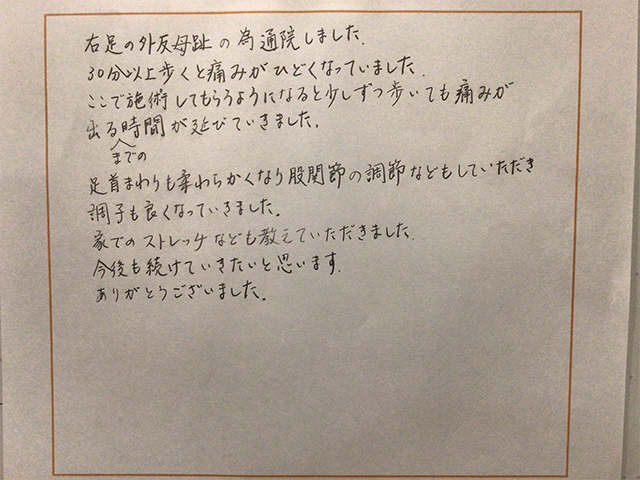 右足の外反母趾の為通院しました.
30分以上歩くと痛みがひどくなっていました.
ここで施術してもらうようになると少しずつ歩いても痛みが
出る時間が延びていきました.
までの
足首まわりも柔わらかくなり股関節の調節などもしていただき
調子も良くなっていきました.
家でのストレッチなども教えていただきました.
今後も続けていきたいと思います.
ありがとうございました.